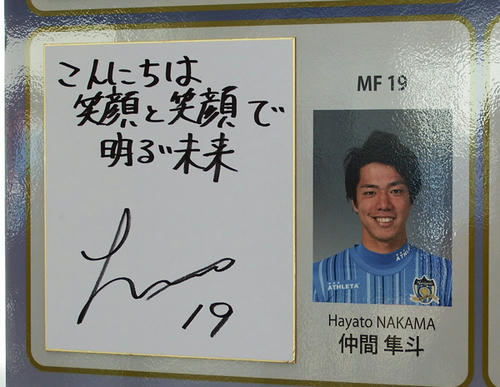 こんにちは
笑顔と笑顔で
明るい未来
19
MF 19
ATHLETA
ATHLETA
Hayato NAKAMA
仲間 隼斗